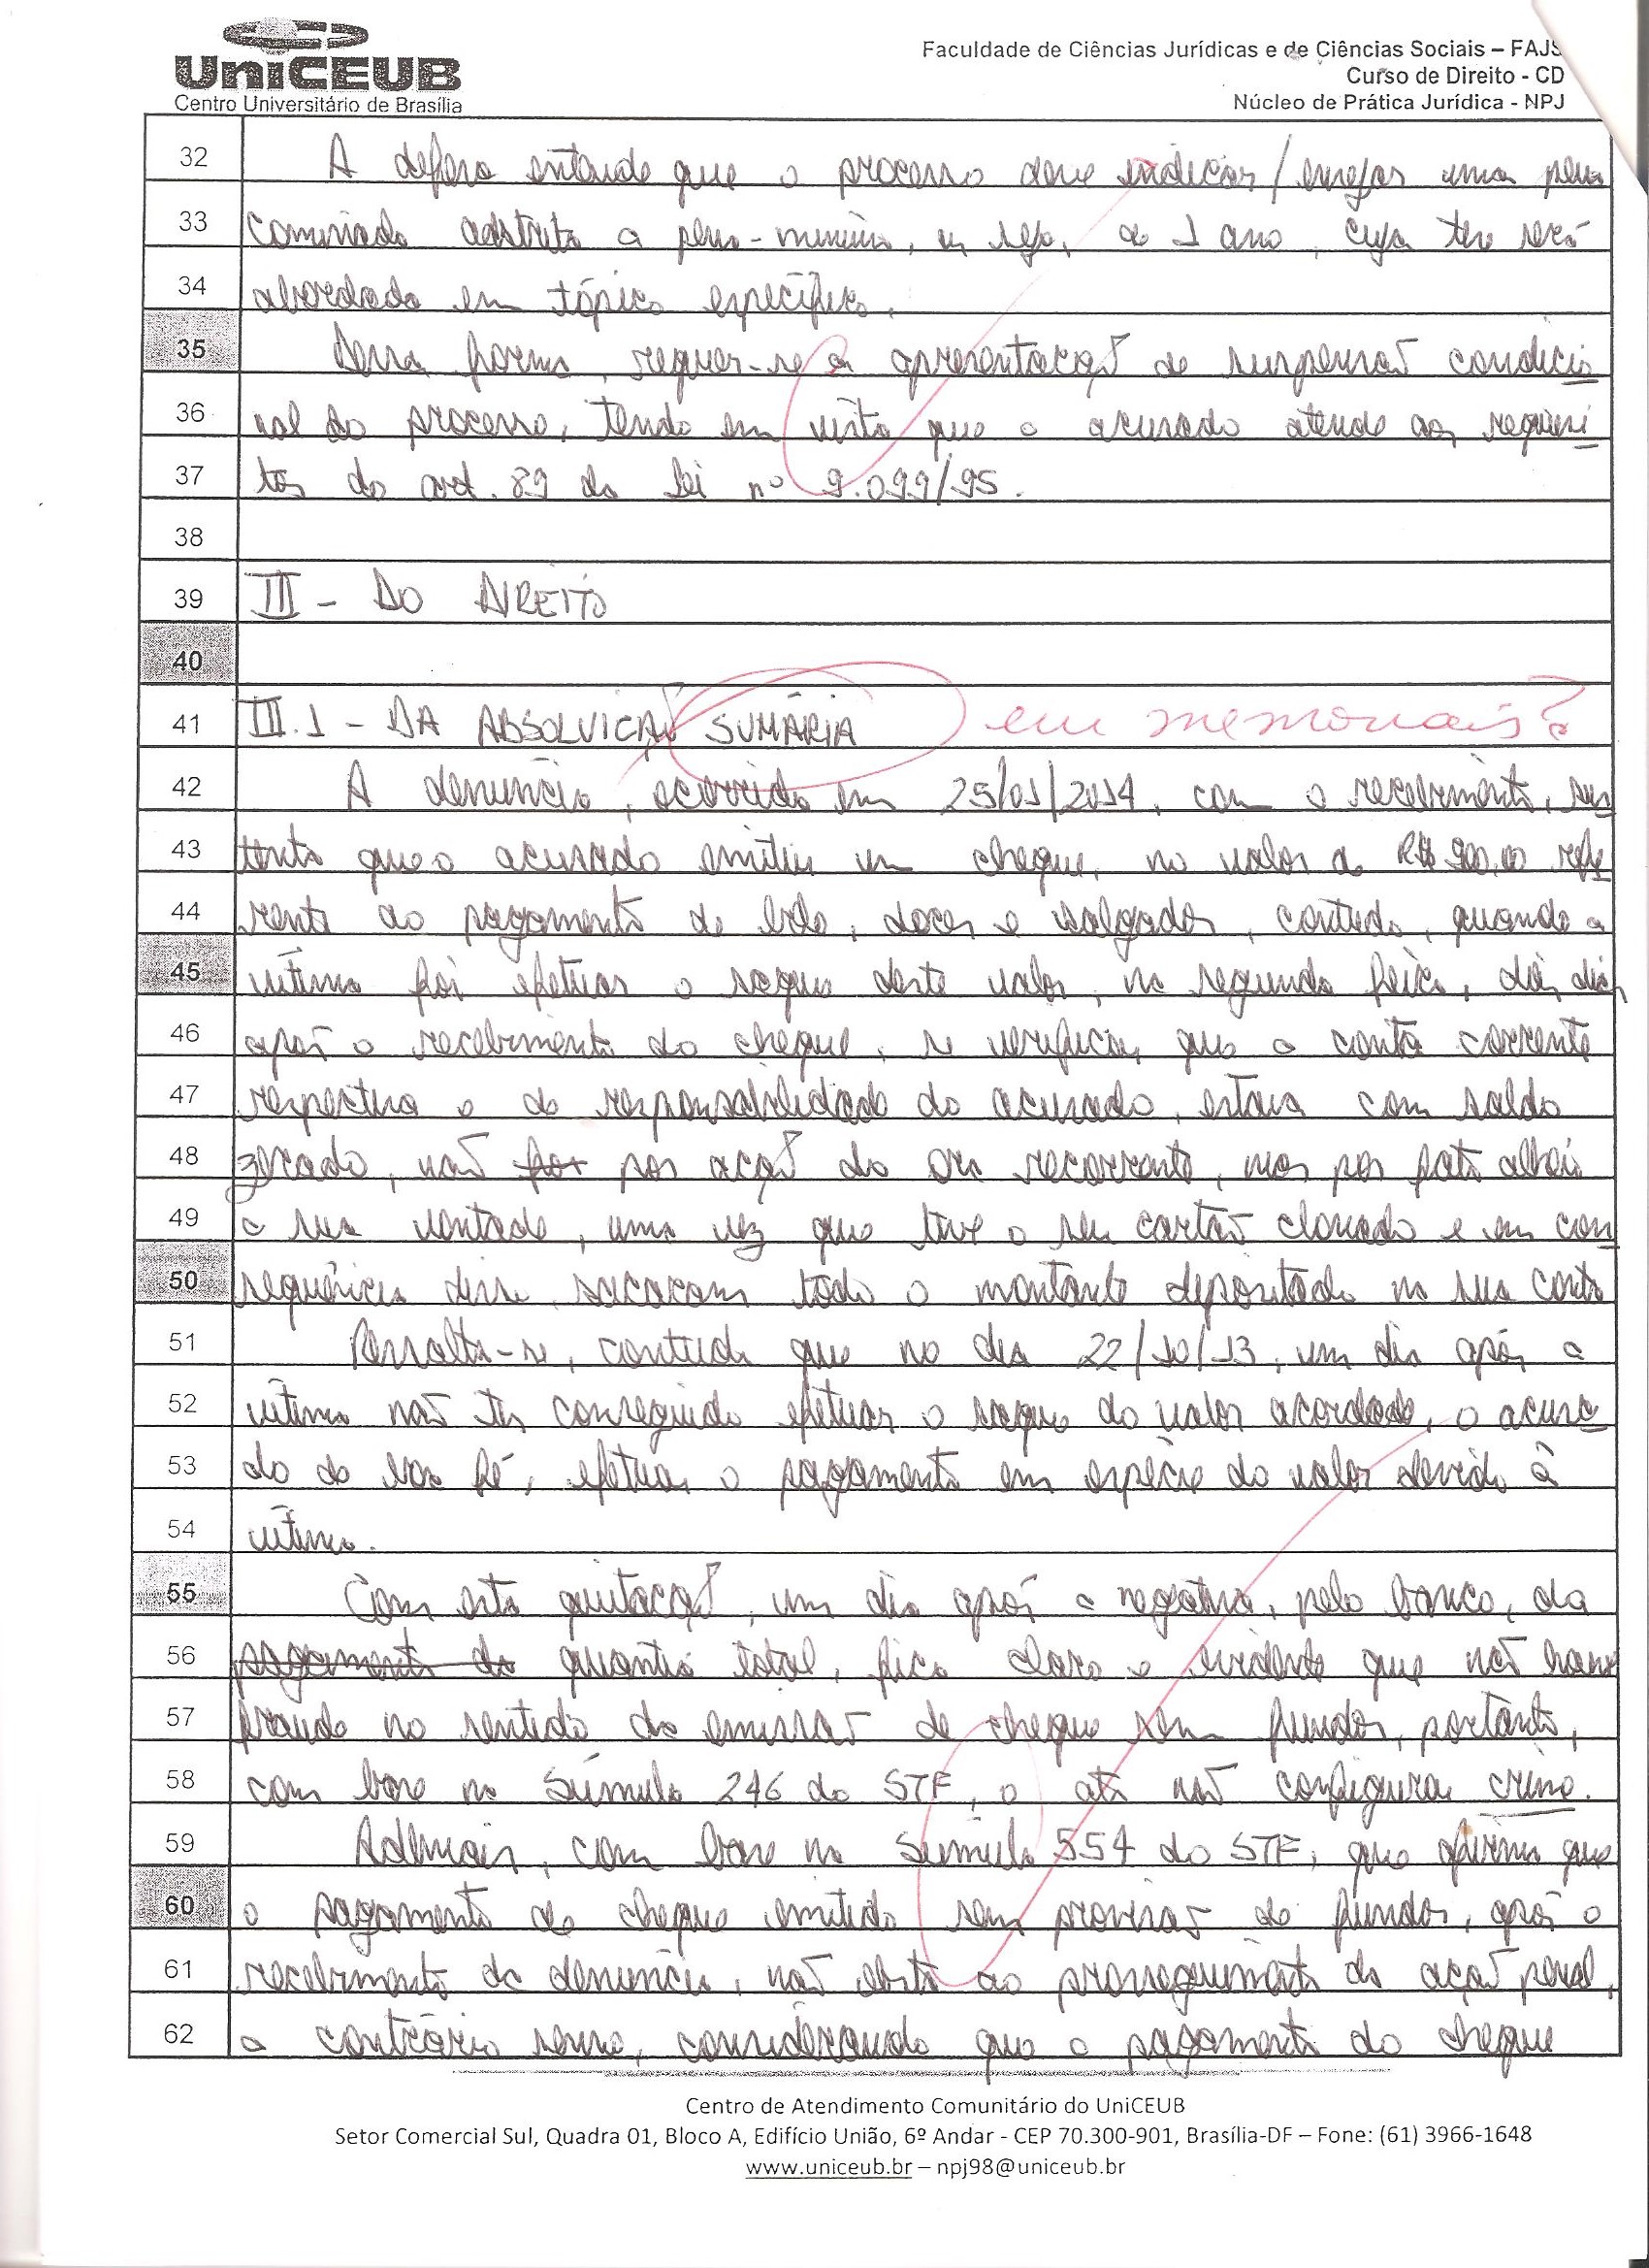 UniCEUB
Centro Universitário de Brasília
Faculdade de Ciências Jurídicas e de Ciências Sociais – FAJS
Curso de Direito - CD
Núcleo de Prática Jurídica - NPJ
32 A defesa entende que o processo deve indicar/ensejar uma pena
33 cominada adstrita a pena-mínima, ou seja, de 1 ano, cuja tese será
34 abordada em tópico específico.
35 Dessa forma, requer-se a apresentação de suspensão condicio
36 nal do processo, tendo em vista que o acusado atende aos requisi
37 tos do art. 89 da Lei nº 9.099/95.
38
39 III - DO DIREITO
40
41 III.1 - DA ABSOLVIÇÃO SUMÁRIA em memoriais?
42 A denúncia, ocorrida em 25/01/2014, com o recebimento, sus
43 tenta que o acusado emitiu um cheque, no valor de R$ 900,00 refe
44 rente ao pagamento de bolo, doces e salgados, contudo, quando a
45 vítima foi efetuar o saque deste valor, na segunda feira, dois dias
46 após o recebimento do cheque, se verificou que a conta corrente
47 respectiva e de responsabilidade do acusado, estava com saldo
48 zerado, não por ação do ora recorrente, mas por fato alheio
49 a sua vontade, uma vez que teve o seu cartão clonado e em con
50 sequência disso sacaram todo o montante depositado na sua conta
51 Ressalta-se, contudo que no dia 22/10/13, um dia após a
52 vítima não ter conseguido efetuar o saque do valor acordado, o acusa
53 do de boa fé, efetuou o pagamento em espécie do valor devido à
54 vítima.
55 Com esta quitação, um dia após a negativa, pelo banco, da
56 pagamento da quantia total, fica claro e evidente que não houve
57 fraude no sentido da emissão de cheque sem fundos, portanto,
58 com base na Súmula 246 do STF, o ato não configurou crime.
59 Ademais, com base na Súmula 554 do STF, que afirma que
60 o pagamento de cheque emitido sem provisão de fundos, após o
61 recebimento da denúncia, não obsta ao prosseguimento da ação penal,
62 a contrário senso, considerando que o pagamento do cheque
Centro de Atendimento Comunitário do UniCEUB
Setor Comercial Sul, Quadra 01, Bloco A, Edifício União, 6º Andar - CEP 70.300-901, Brasília-DF – Fone: (61) 3966-1648
www.uniceub.br – npj98@uniceub.br